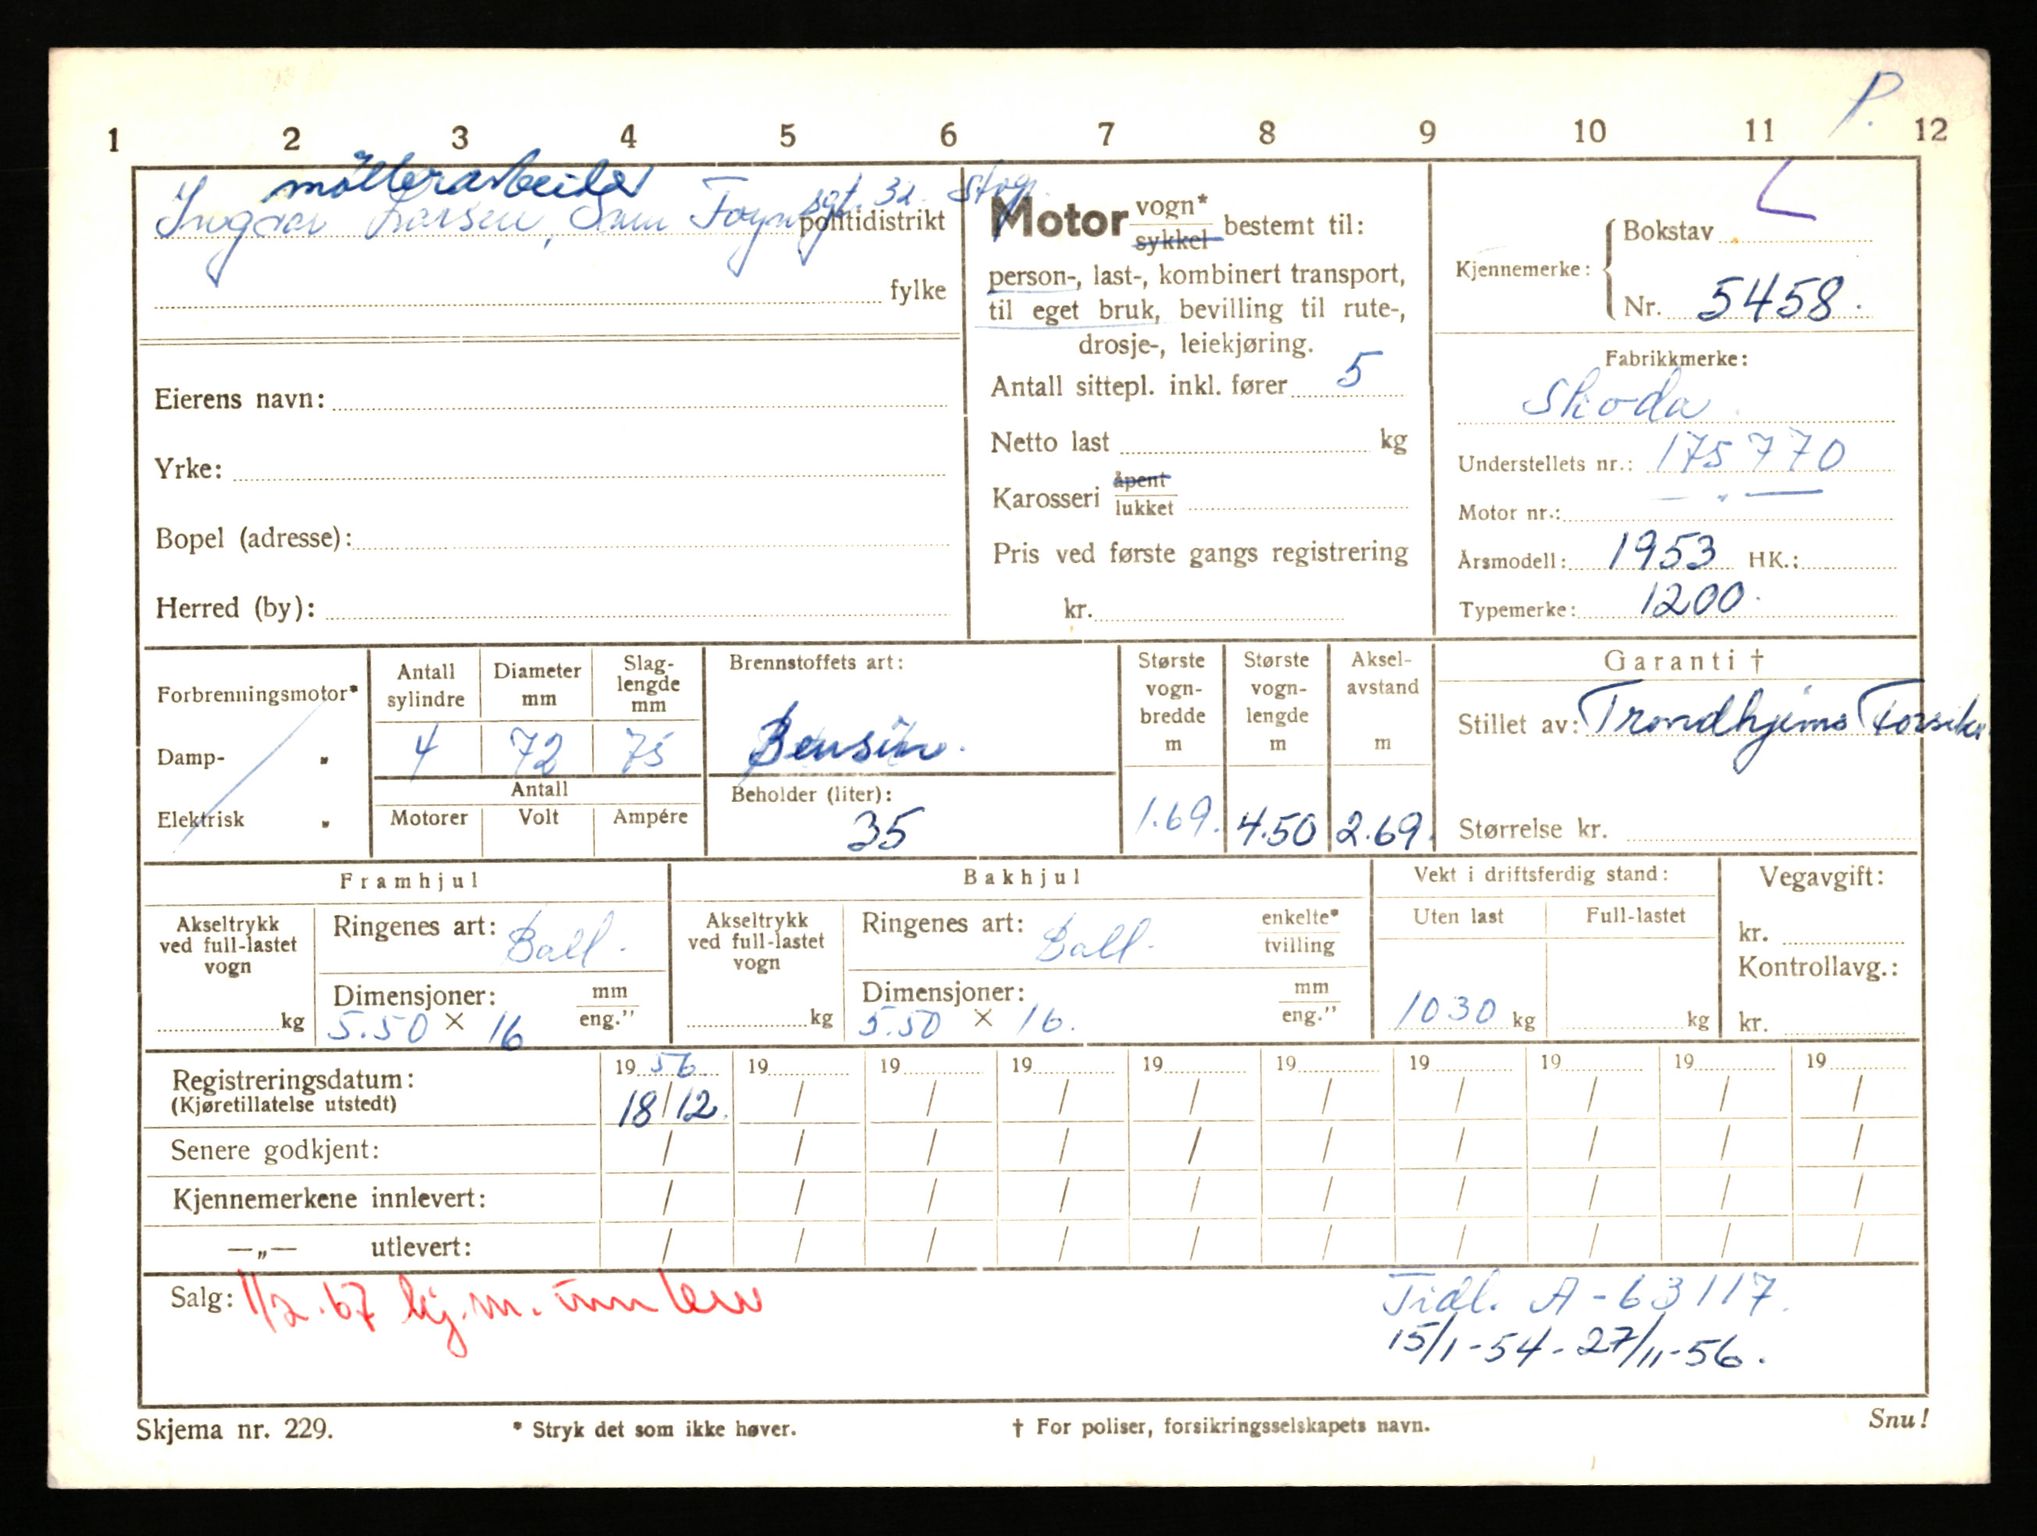 P.
1 2 3 4 5 6 7 8 9 10 11 12
møllerarbeider
Ingvar Larsen, Svend Foynsgt. 32. Stvgr. politidistrikt
fylke
Eierens navn:
Yrke:
Bopel (adresse):
Herred (by):
Motor vogn* sykkel bestemt til:
person-, last-, kombinert transport,
til eget bruk, bevilling til rute-,
drosje-, leiekjøring.
Antall sittepl. inkl. fører 5
Netto last kg
Karosseri åpent lukket
Pris ved første gangs registrering
kr.
L
Kjennemerke: Bokstav
Nr. 5458.
Fabrikkmerke:
Skoda
Understellets nr.: 175770
Motor nr.: — „ —
Årsmodell: 1953 HK.:
Typemerke: 1200.
Forbrenningsmotor*
Damp- "
Elektrisk "
Antall sylindre
4
Diameter mm
72
Slag-lengde mm
75
Antall
Motorer Volt Ampére
Brennstoffets art:
Bensin.
Beholder (liter):
35
Største vogn-bredde m
1.69.
Største vogn-lengde m
4.50
Aksel-avstand m
2.69.
Garanti †
Stillet av: Trondhjems Forsikr.
Størrelse kr.
Framhjul
Akseltrykk ved full-lastet vogn
kg
Ringenes art: Ball.
Dimensjoner: mm eng."
5.50 × 16
Bakhjul
Akseltrykk ved full-lastet vogn
kg
Ringenes art: Ball. enkelte* tvilling
Dimensjoner: mm eng."
5.50 × 16.
Vekt i driftsferdig stand:
Uten last Full-lastet
1030 kg kg
Vegavgift:
kr.
Kontrollavg.:
kr.
Registreringsdatum: 1956 19 19 19 19 19 19 19 19 19
(Kjøretillatelse utstedt) 18/12. / / / / / / / / /
Senere godkjent: / / / / / / / / / /
Kjennemerkene innlevert: / / / / / / / / / /
—„— utlevert: / / / / / / / / / /
Salg: 1/2.67 kj.m. innlev
Tidl. A-63117.
15/1-54-27/11-56.
Skjema nr. 229.
* Stryk det som ikke høver.
† For poliser, forsikringsselskapets navn.
Snu!